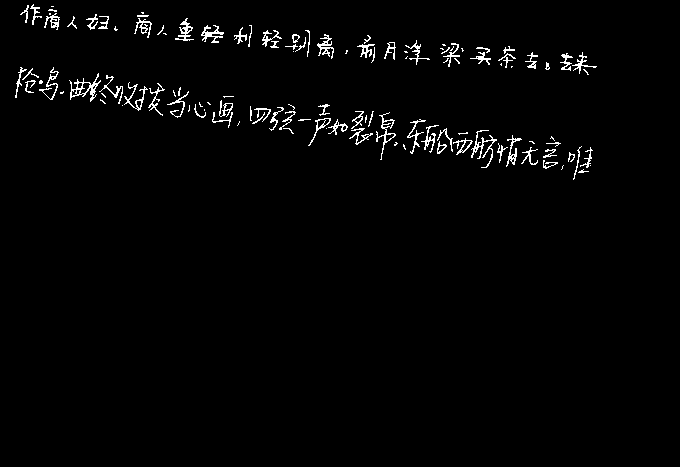 作商人妇。商人重轻利轻别离,前月浮梁买茶去。去来
枪鸣.曲终收拨当心画,四弦一声如裂帛.东船西舫悄无言,唯